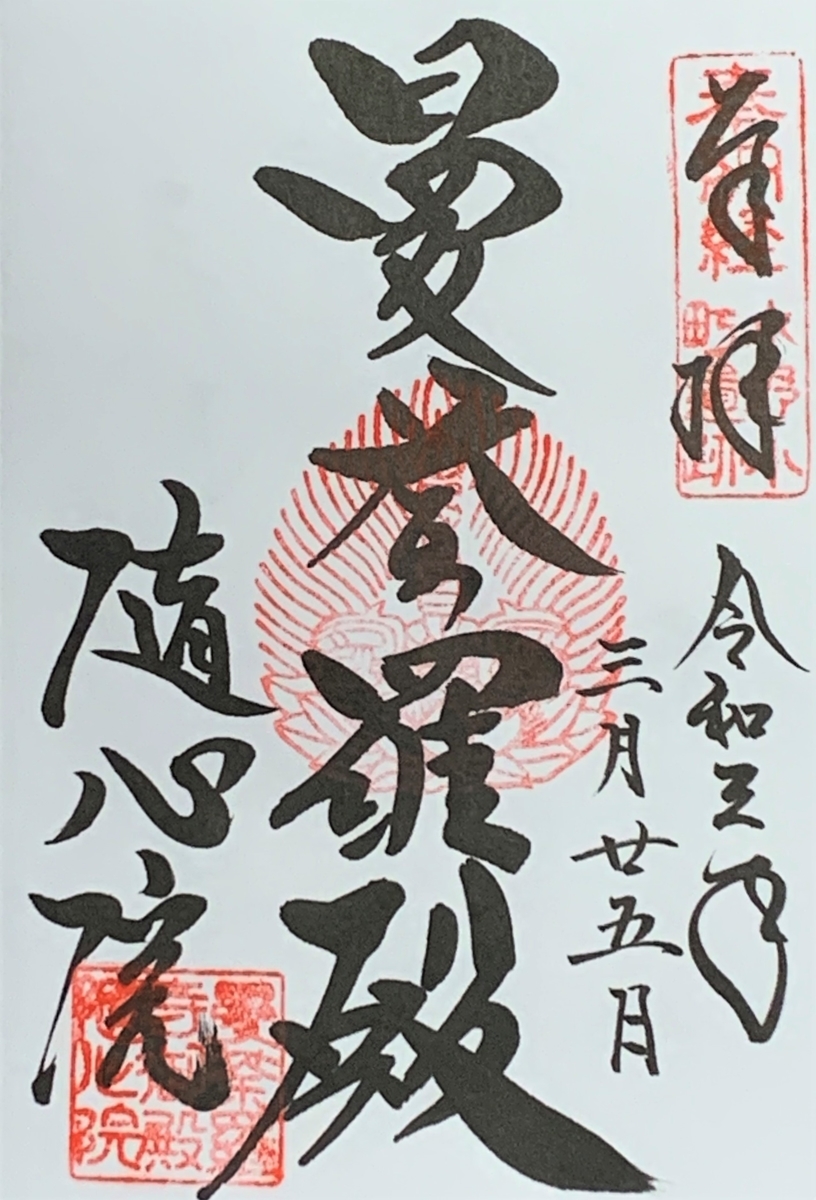 奉拝
令和三年
三月廿五日
曼荼羅殿
随心院